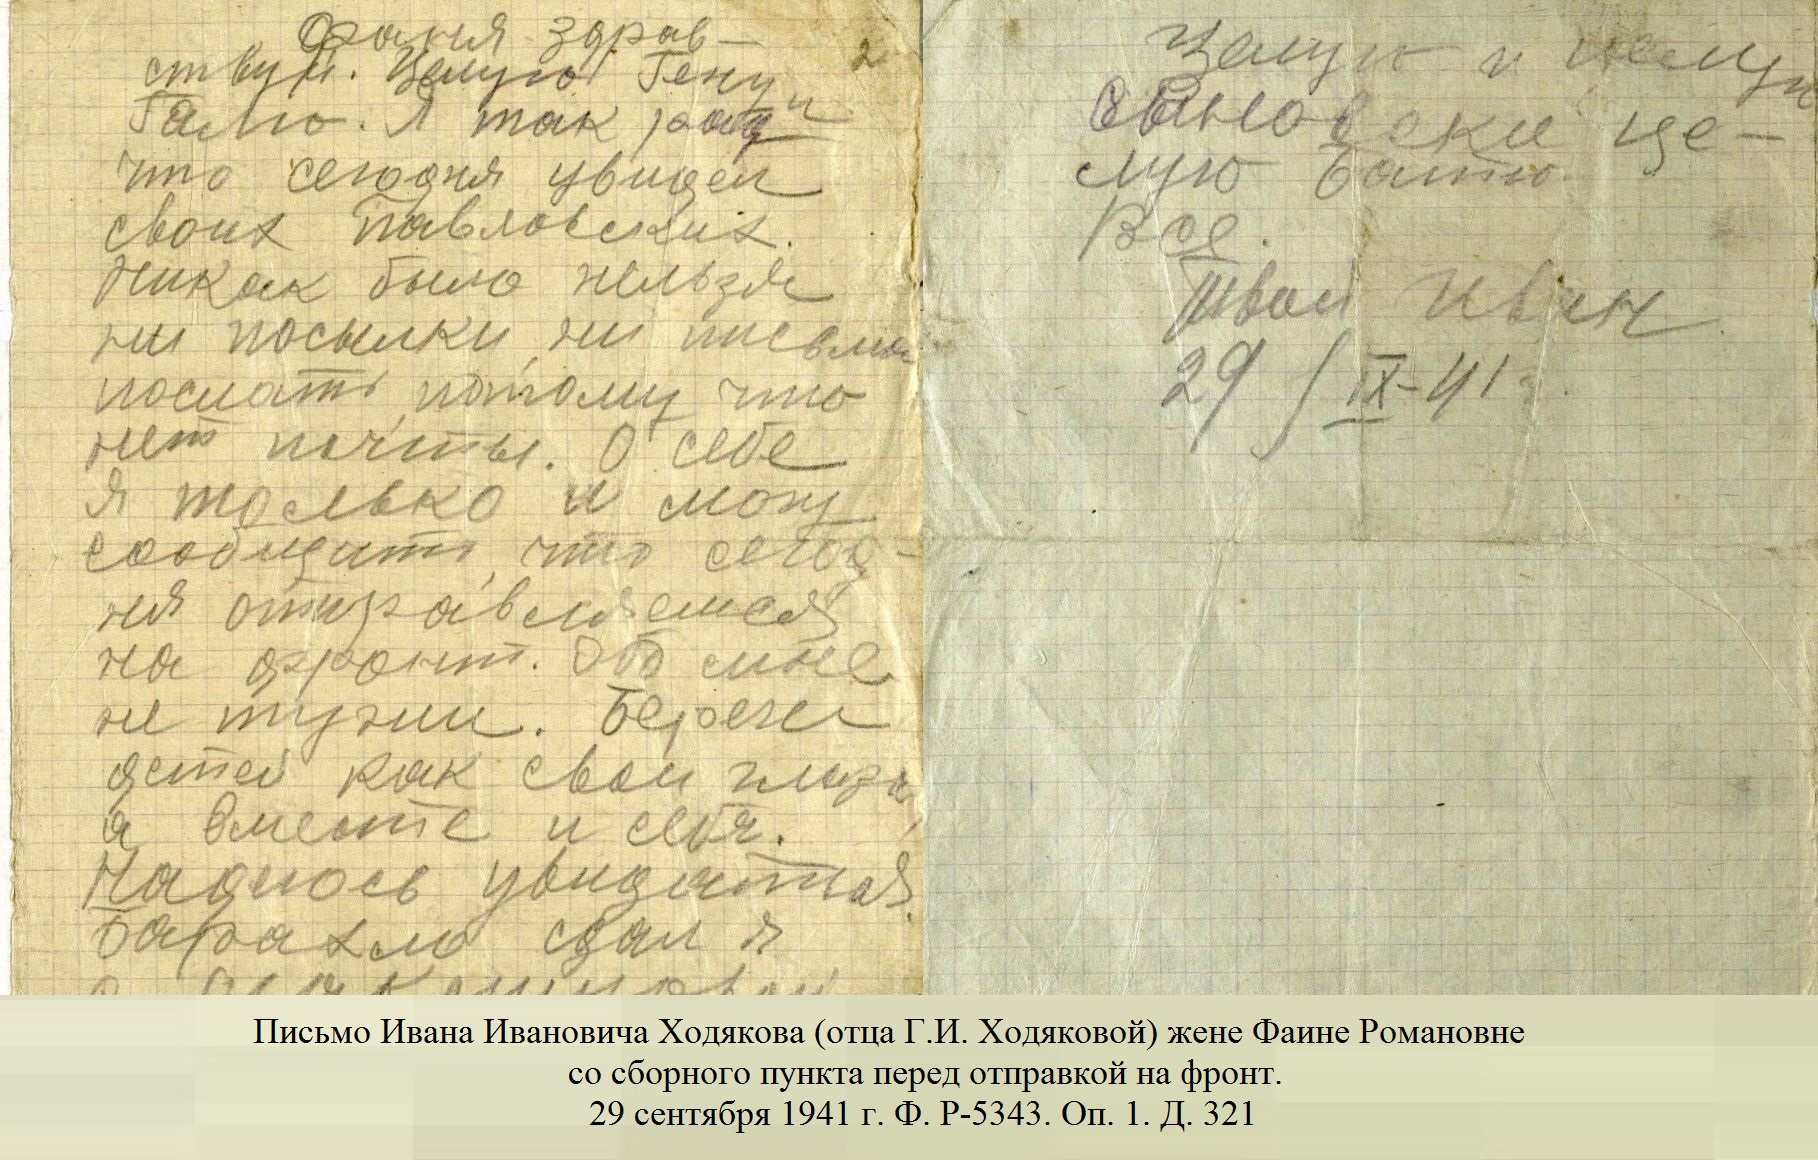 Фаня здрав-
2
ствуй. Целую Гену и
Галю. Я так рад
что сегодня увидел
своих Павловских.
Никак было нельзя
ни посылки, ни письма
послать, потому что
нет почты. О себе
я только и могу
сообщить, что сегод-
ня отправляемся
на фронт. Обо мне
не тужи. Береги
детей как свои глаза,
а вместе и себя.
Надеюсь увидаться.
Барахло сдал я
Целую и целую
це-
лую Батю.
Все.
Твой Иван.
29/IX-41 г.
Письмо Ивана Ивановича Ходякова (отца Г.И. Ходяковой) жене Фаине Романовне
со сборного пункта перед отправкой на фронт.
29 сентября 1941 г. Ф. Р-5343. Оп. 1. Д. 321